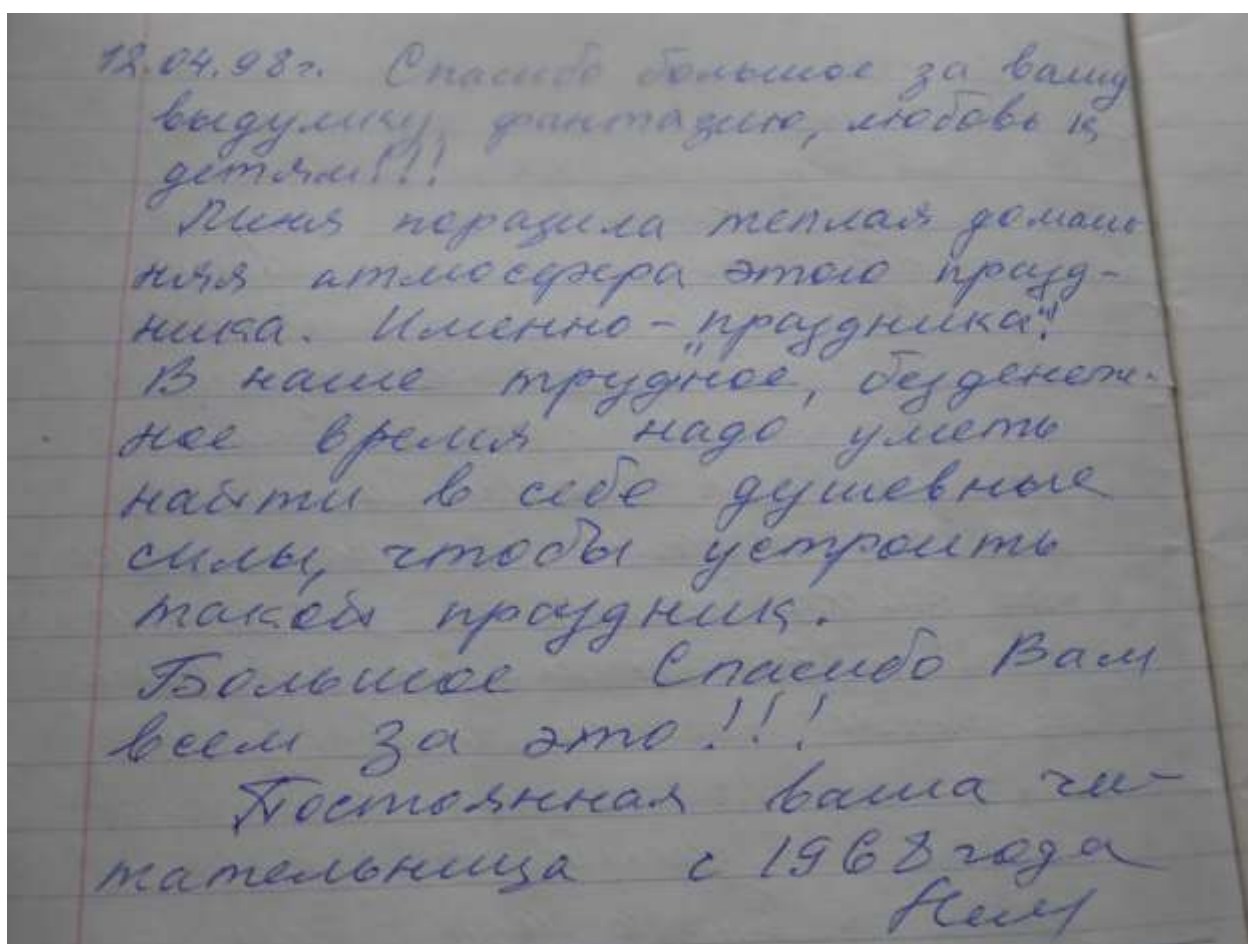 12.04.98г. Спасибо большое за вашу
выдумку, фантазию, любовь к
детям!!!
Меня поразила теплая домаш
няя атмосфера этого празд-
ника. Именно - "праздника"!
В наше трудное, безденеж-
ное время надо уметь
найти в себе душевные
силы, чтобы устроить
такой праздник.
Большое Спасибо Вам
всем за это!!!
Постоянная ваша чи-
тательница с 1968 года